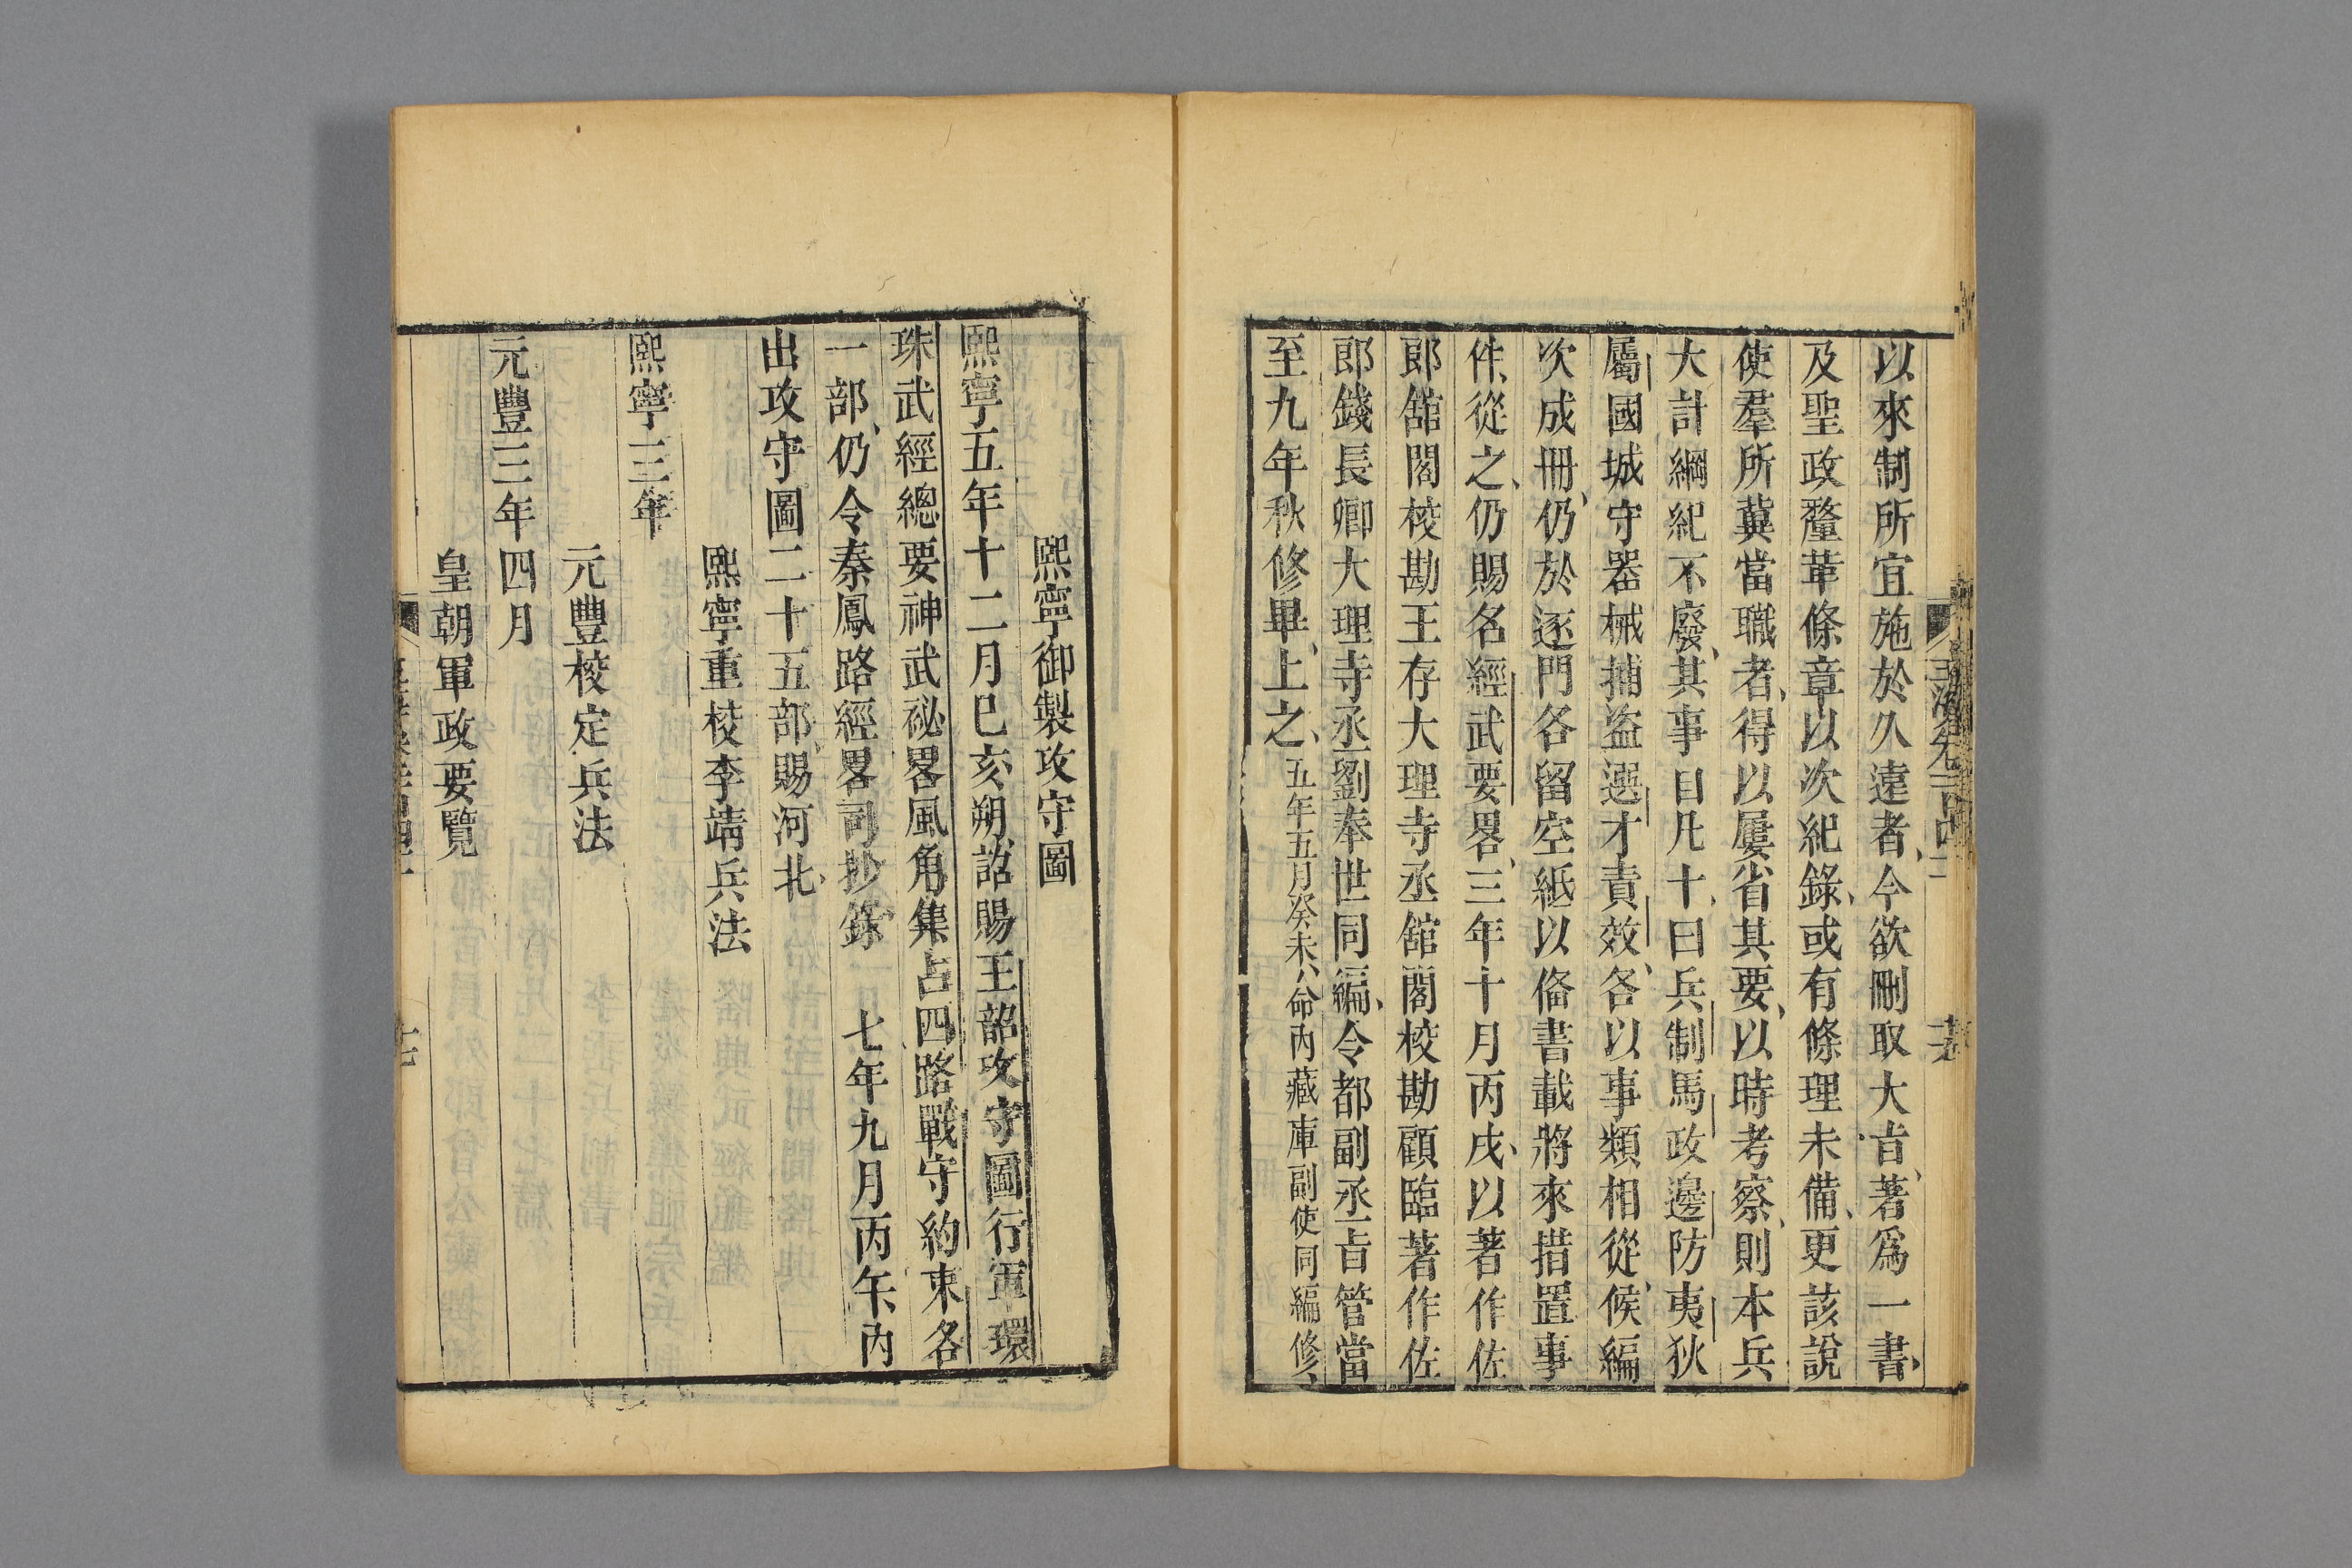 以來制所宜施於久遠者今欲刪取大旨著爲一書
及聖政釐革條章以次紀錄或有條理未備更該說
使羣所冀當職者得以屢省其要以時考察則本兵
大計綱紀不廢其事目凡十曰兵制馬政邊防夷狄
屬國城守器械捕盜選才責效各以事類相從候編
次成冊仍於逐門各留空紙以俻書載將來措置事
件從之仍賜名經武要畧三年十月丙戌以著作佐
郎舘閣校勘王存大理寺丞舘閣校勘顧臨著作佐
郎錢長卿大理寺丞劉奉世同編令都副丞旨管當
至九年秋修畢上之五年五月癸未命內藏庫副使同編修
熙寧御製攻守圖
熙寧五年十二月巳亥朔詔賜王韶攻守圖行軍環
珠武經總要神武祕畧風角集占四路戰守約束各
一部仍令秦鳳路經畧司抄錄 七年九月丙午內
出攻守圖二十五部賜河北
熙寧重校李靖兵法
熙寧三年
元豐校定兵法
元豐三年四月
皇朝軍政要覽